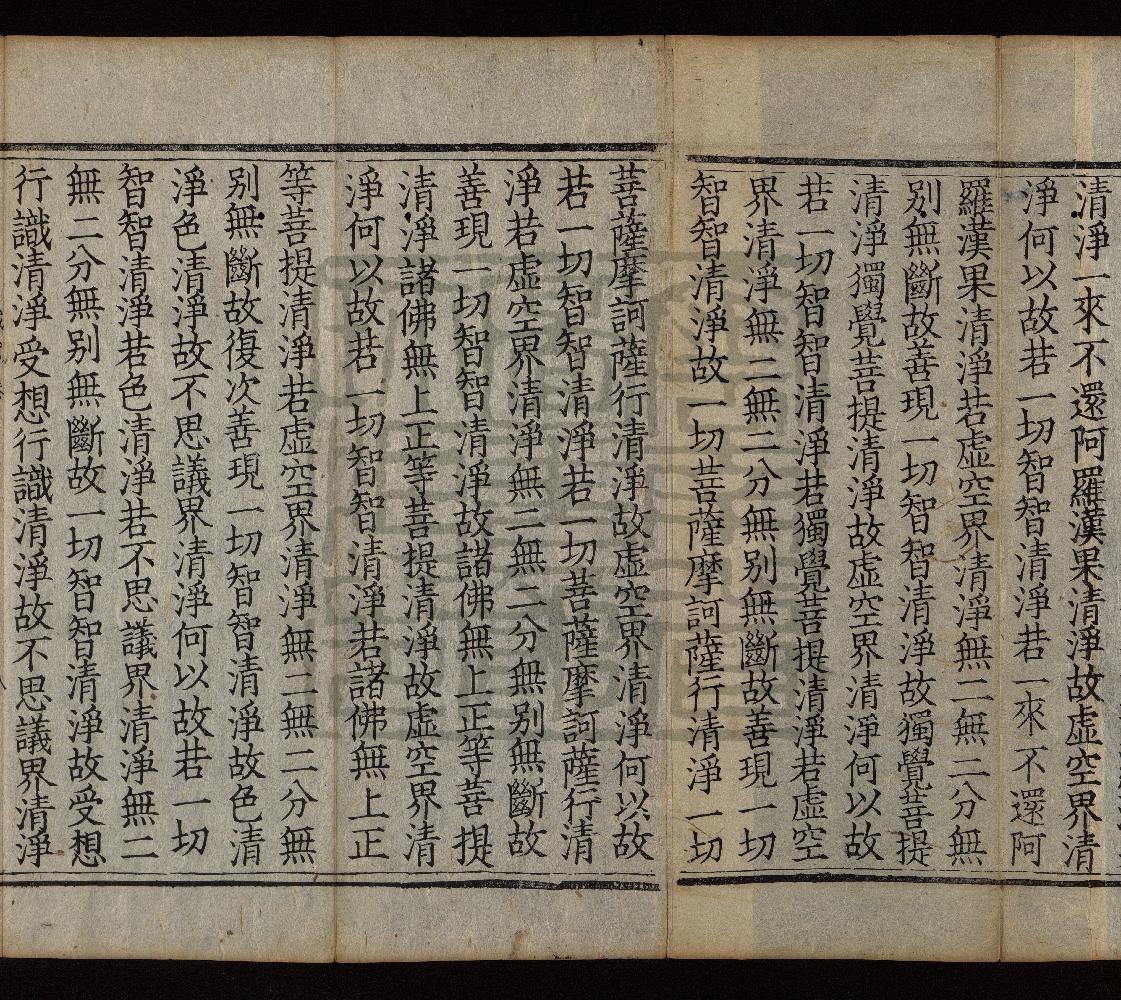 清淨一來不還阿羅漢果清淨故虛空界清
淨何以故若一切智智清淨若一來不還阿
羅漢果清淨若虛空界清淨無二無二分無
別無斷故善現一切智智清淨故獨覺菩提
清淨獨覺菩提清淨故虛空界清淨何以故
若一切智智清淨若獨覺菩提清淨若虛空
界清淨無二無二分無別無斷故善現一切
智智清淨故一切菩薩摩訶薩行清淨一切
菩薩摩訶薩行清淨故虛空界清淨何以故
若一切智智清淨若一切菩薩摩訶薩行清
淨若虛空界清淨無二無二分無別無斷故
善現一切智智清淨故諸佛無上正等菩提
清淨諸佛無上正等菩提清淨故虛空界清
淨何以故若一切智智清淨若諸佛無上正
等菩提清淨若虛空界清淨無二無二分無
別無斷故復次善現一切智智清淨故色清
淨色清淨故不思議界清淨何以故若一切
智智清淨若色清淨若不思議界清淨無二
無二分無別無斷故一切智智清淨故受想
行識清淨受想行識清淨故不思議界清淨